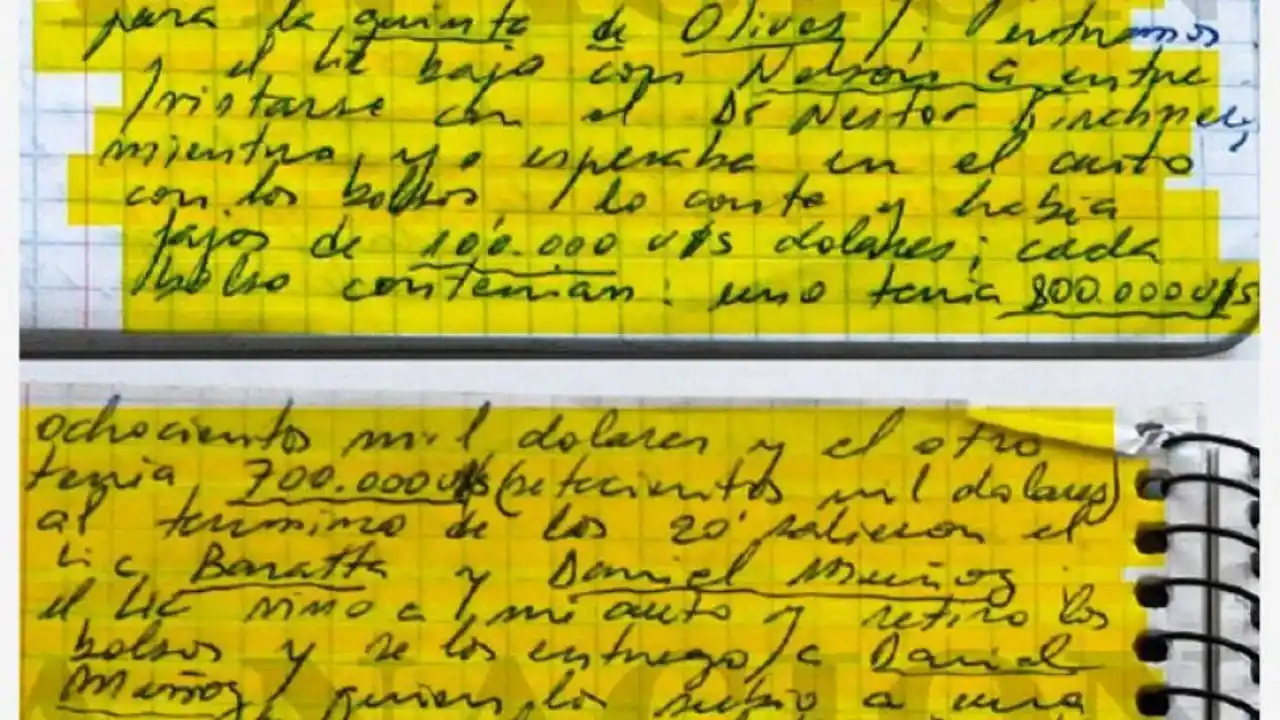 para la quinta de Olivos /; entramos
y el Lic bajo con Nelson a entre
/vistarse con el Dr Nestor Kirchner,
mientras, yo esperaba en el auto
con los bolsos / lo conte y habia
fajos de 100.000 U$S dolares; cada
/bolso contenian: uno tenia 800.000 U$S
ochocientos mil dolares y el otro
tenia, 700.000 U$S (setecientos mil dolares)
al termino de los 20' salieron el
Lic Baratta y Daniel Muñoz
el Lic vino a / mi auto y retiro los
bolsos y se los entrego / a Daniel
Muñoz / quien los subio a una